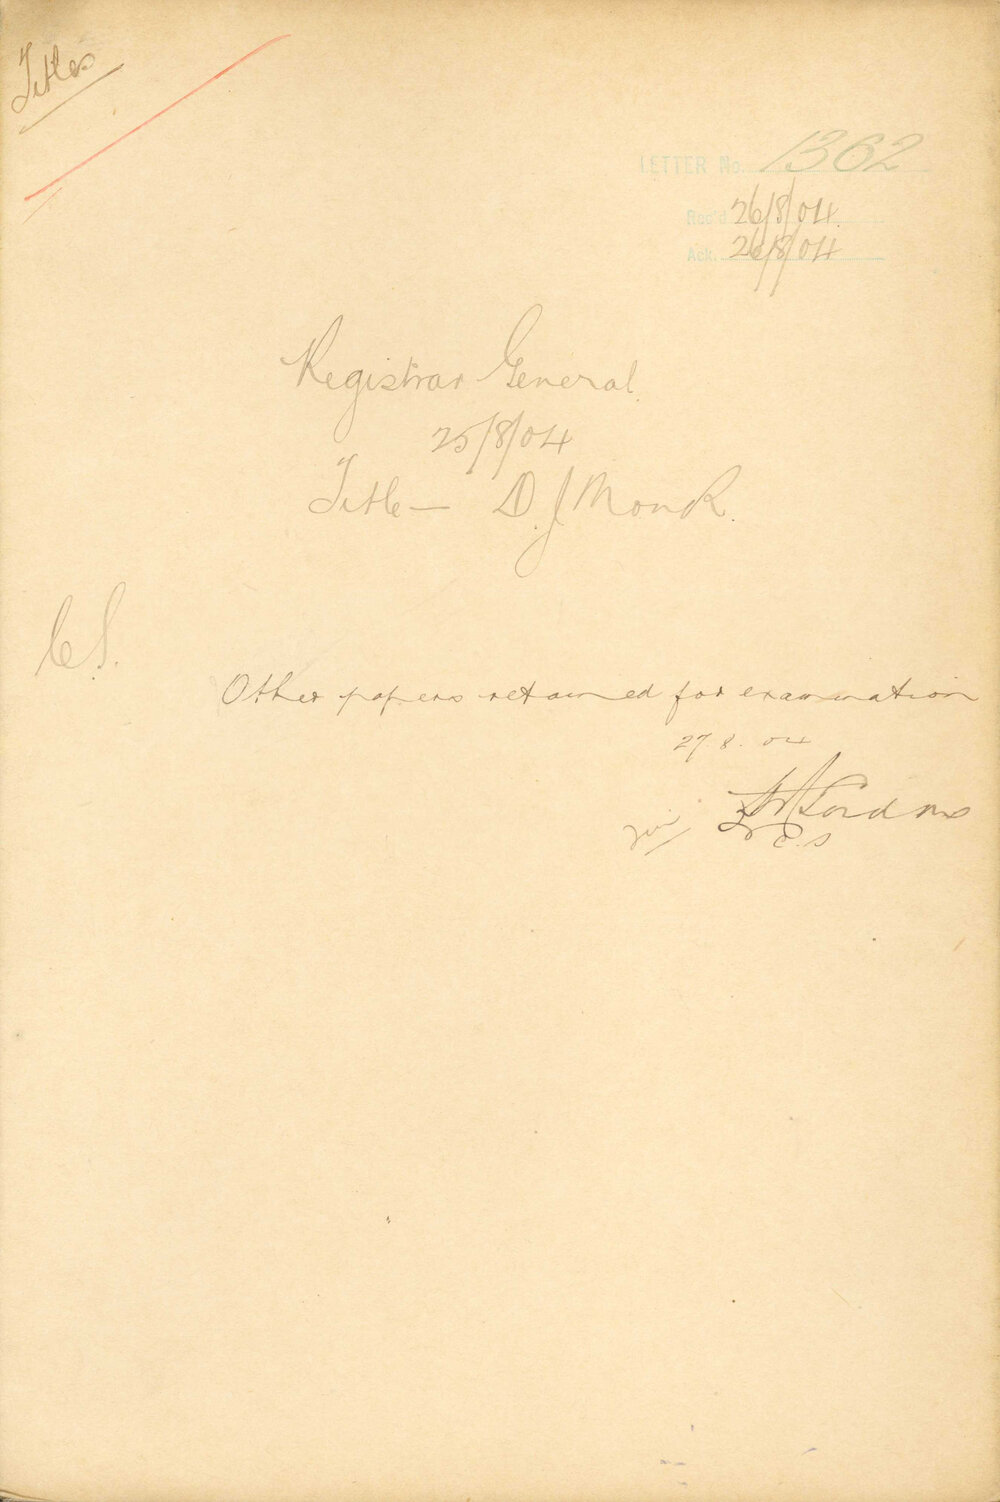 Titles
LETTER No. 1362
Rec'd 26/8/04
Ack. 26/8/04
Registrar General
25/8/04
Title — D. J Monk.
C S.
Other papers retained for examination
27 8. 04
C. S